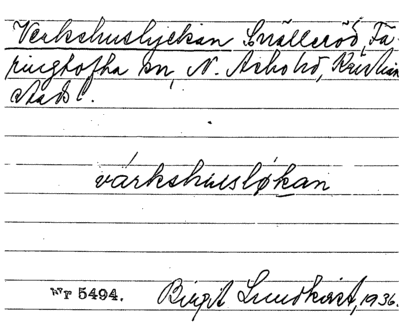 Verkshuslyckan Snälleröd, Fä-
ringtofta sn, N. Åsbo hd, Kristian
stads l.
várkshusløkan
Nr 5494.
Birgit Lundkvist, 1936.